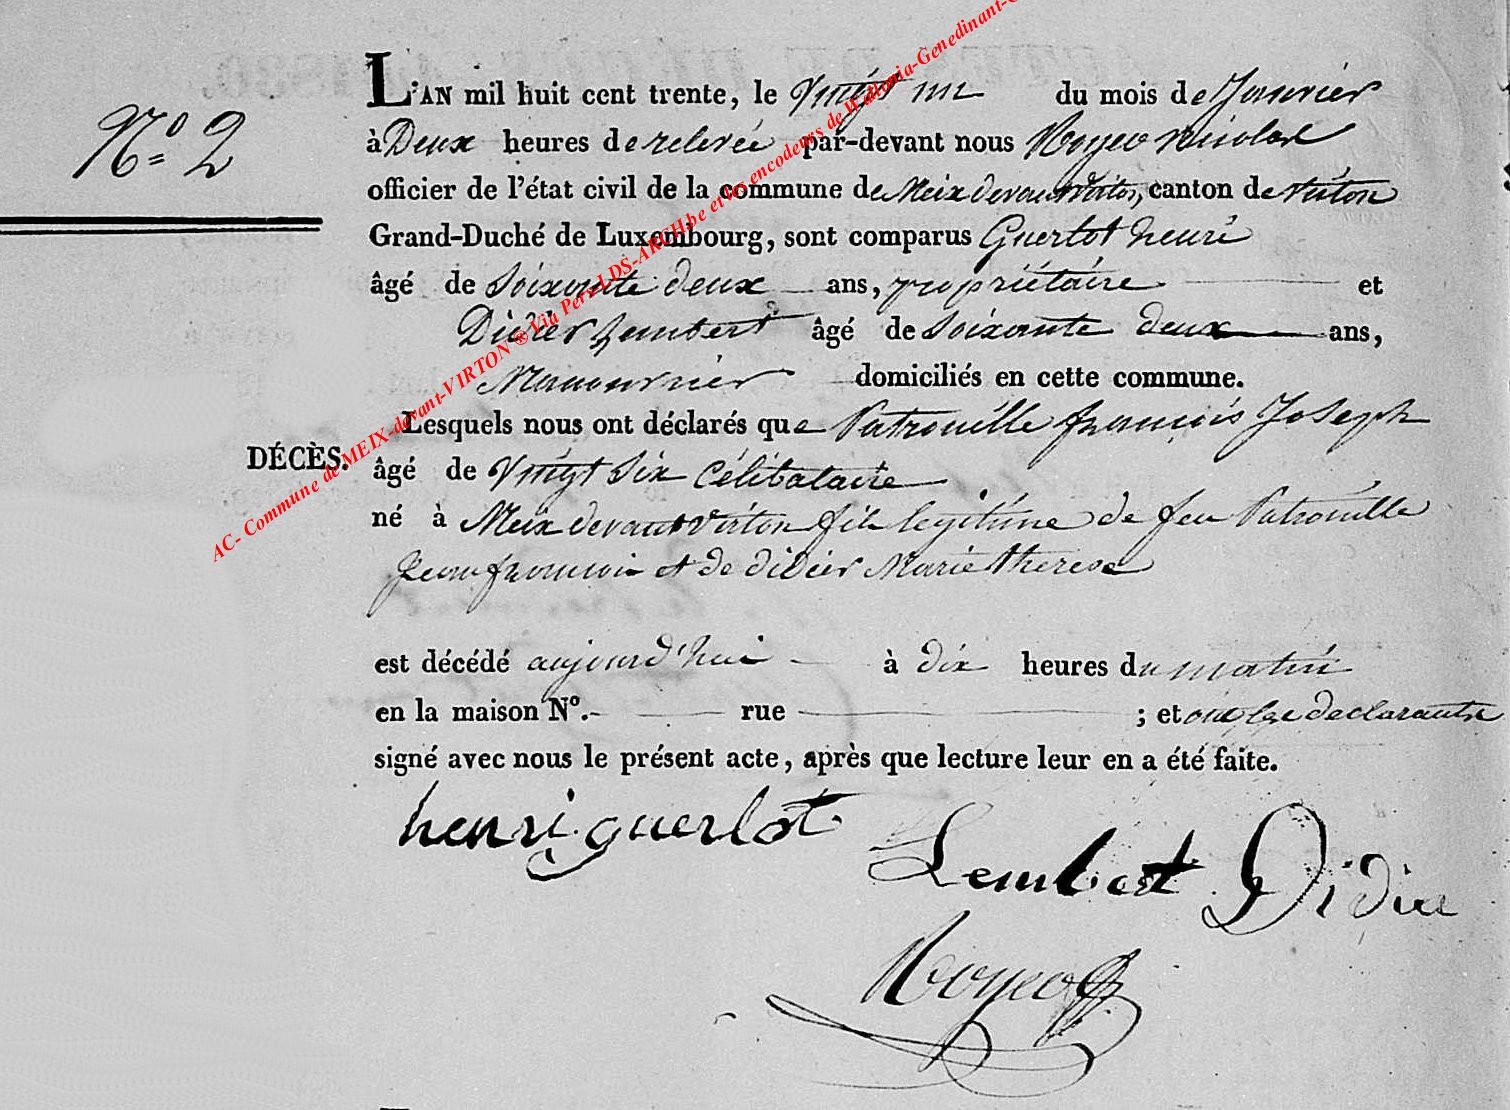 N.º 2
L'AN mil huit cent trente, le Vingt un du mois de Janvier
à Deux heures de relevée par-devant nous Noyco nicolas
officier de l'état civil de la commune de Meix devant virton, canton de Virton
Grand-Duché de Luxembourg, sont comparus Guerlot henri
âgé de Soixante deux ans, propriétaire et
Didier Lembert âgé de Soixante deux ans,
Manouvrier domiciliés en cette commune.
Lesquels nous ont déclarés que Patrouille françois Joseph
DÉCÈS. âgé de Vingt Six Célibataire
né à Meix devant virton fils legitime de feu Patrouille
Jean françois et de didier Marie therese
est décédé aujourd'hui à dix heures du matin
en la maison Nº. rue ; et declarants
signé avec nous le présent acte, après que lecture leur en a été faite.
henri guerlot
Lembert Didier
Noyco
AC- Commune de MEIX-devant-VIRTON ® Via Perz LDS-ARCH.be et les encodeurs de Wallonia-Genedinant-